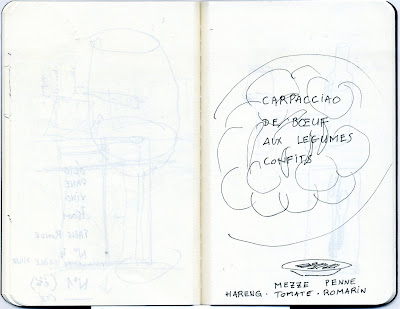 CARPACCIAO
DE BŒUF
AUX LEGUMES
CONFITS
MEZZE PENNE
HARENG · TOMATE · ROMARIN